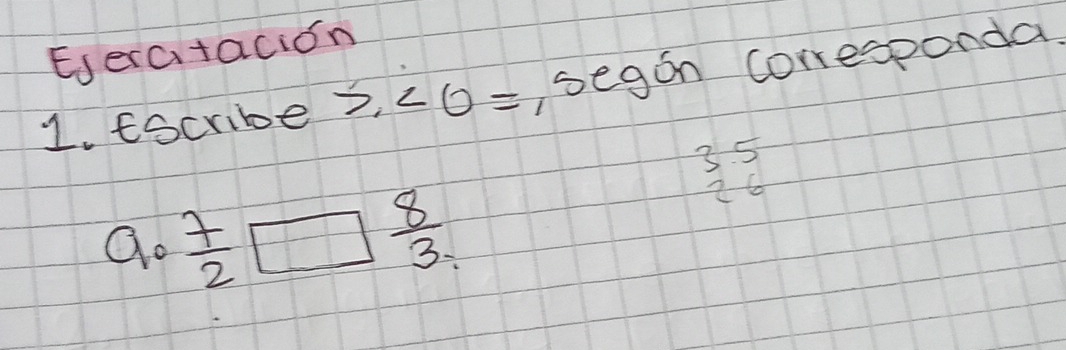 Ejercitación
1. Escribe >, < o =, según corresponda.
3.5
2 6
a. 7/2 □ 8/3.